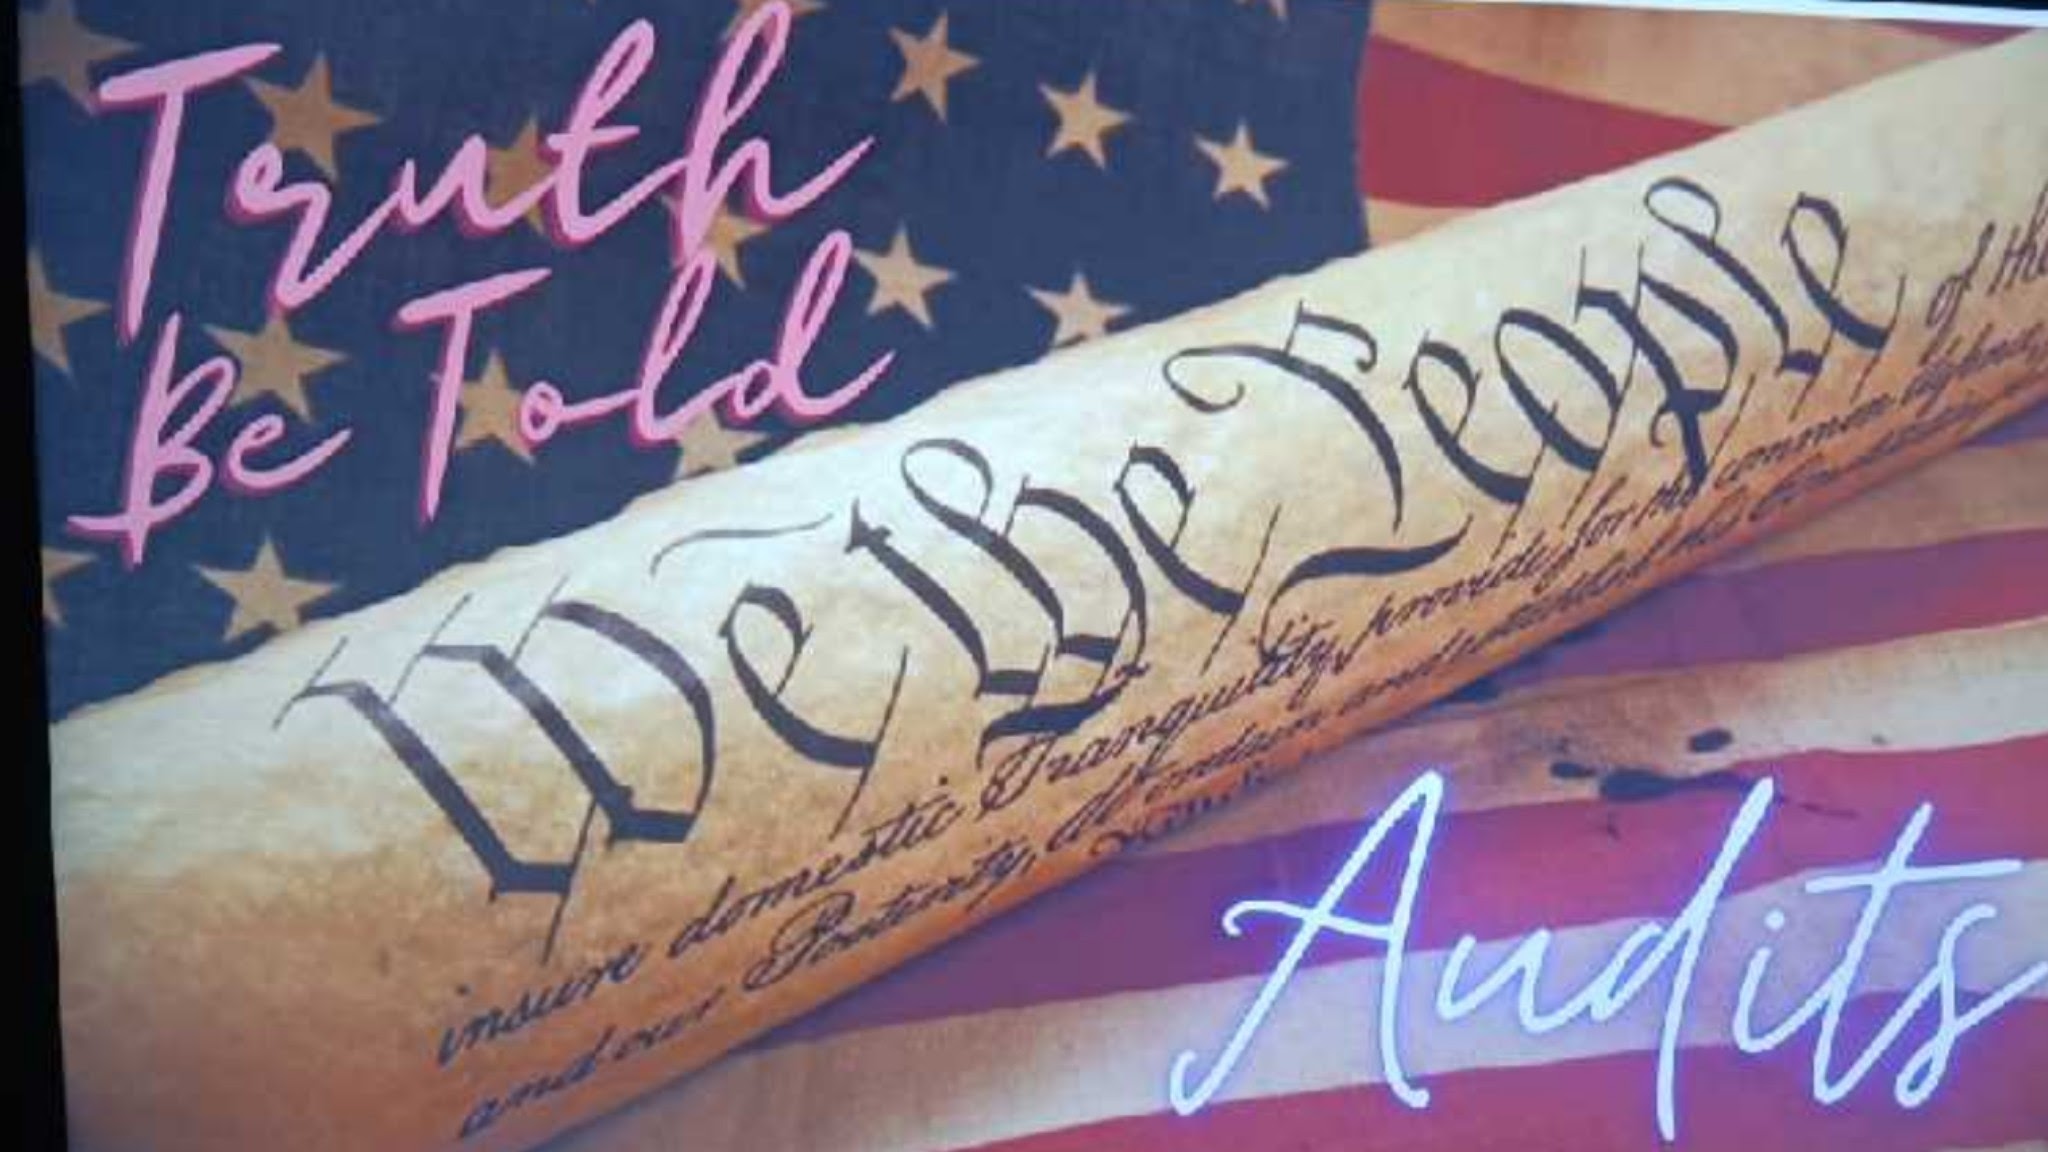 Truth
Be Told
We the People of the
insure domestic Tranquility, provide for the common defence,
and our Posterity, do ordain and establish this
Audits